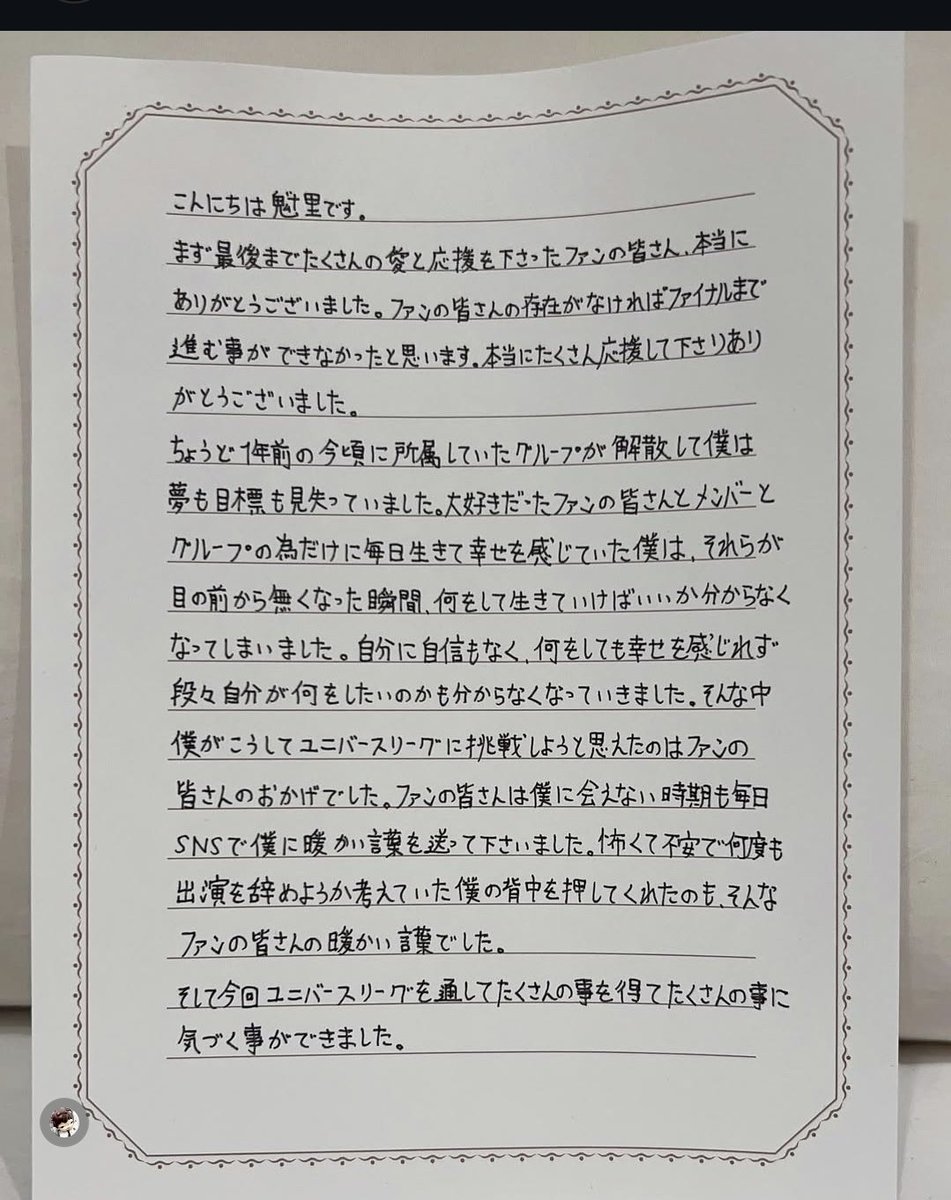 こんにちは魁里です。
まず最後までたくさんの愛と応援を下さったファンの皆さん、本当に
ありがとうございました。ファンの皆さんの存在がなければファイナルまで
進む事ができなかったと思います。本当にたくさん応援して下さりあり
がとうございました。
ちょうど1年前の今頃に所属していたグループが解散して僕は
夢も目標も見失っていました。大好きだったファンの皆さんとメンバーと
グループの為だけに毎日生きて幸せを感じていた僕は、それらが
目の前から無くなった瞬間、何をして生きていけばいいか分からなく
なってしまいました。自分に自信もなく、何をしても幸せを感じれず
段々自分が何をしたいのかも分からなくなっていきました。そんな中
僕がこうしてユニバースリーグに挑戦しようと思えたのはファンの
皆さんのおかげでした。ファンの皆さんは僕に会えない時期も毎日
SNSで僕に暖かい言葉を送って下さいました。怖くて不安で何度も
出演を辞めようか考えていた僕の背中を押してくれたのも、そんな
ファンの皆さんの暖かい言葉でした。
そして今回ユニバースリーグを通してたくさんの事を得てたくさんの事に
気づく事ができました。